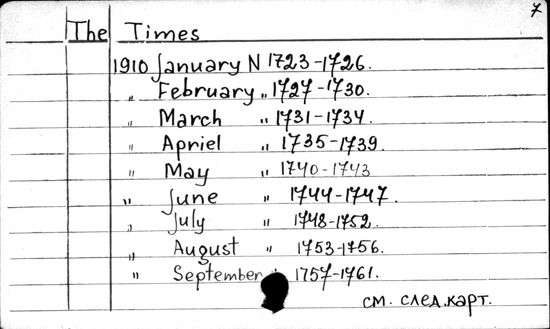 7
The Times
1910 January N 1723-1726.
" February " 1727-1730.
" March " 1731-1734.
" Apriel " 1735-1739.
" May " 1740-1743
" June " 1744-1747.
" July " 1748-1752.
" August " 1753-1756.
" September " 1757-1761.
см. след.карт.